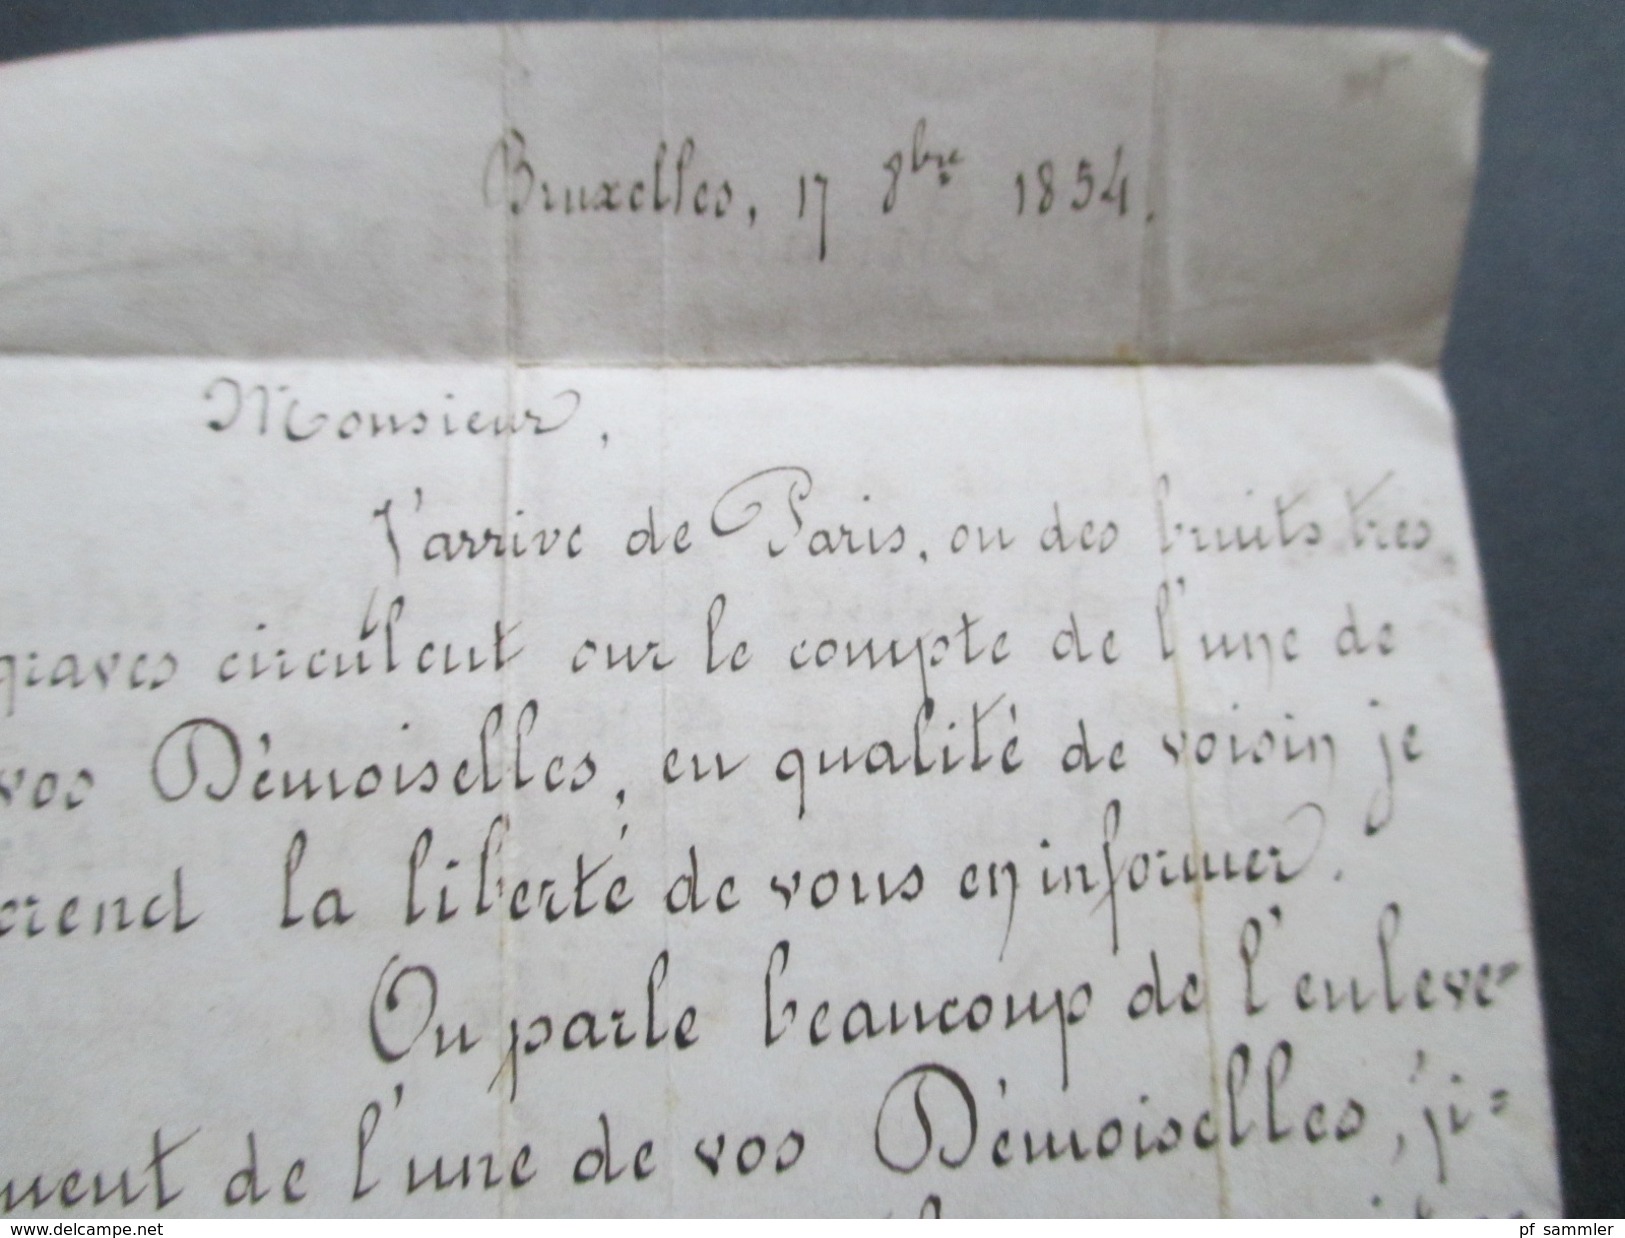 Bruxelles, 17 8bre 1854.
Monsieur,
J'arrive de Paris, ou des bruits tres
graves circulent sur le compte de l'une de
vos Démoiselles, en qualité de voisin je
prend la liberté de vous en informer.
On parle beaucoup de l'enleve=
ment de l'une de vos Démoiselles, j'i=
www.delcampe.net
pf_sammler